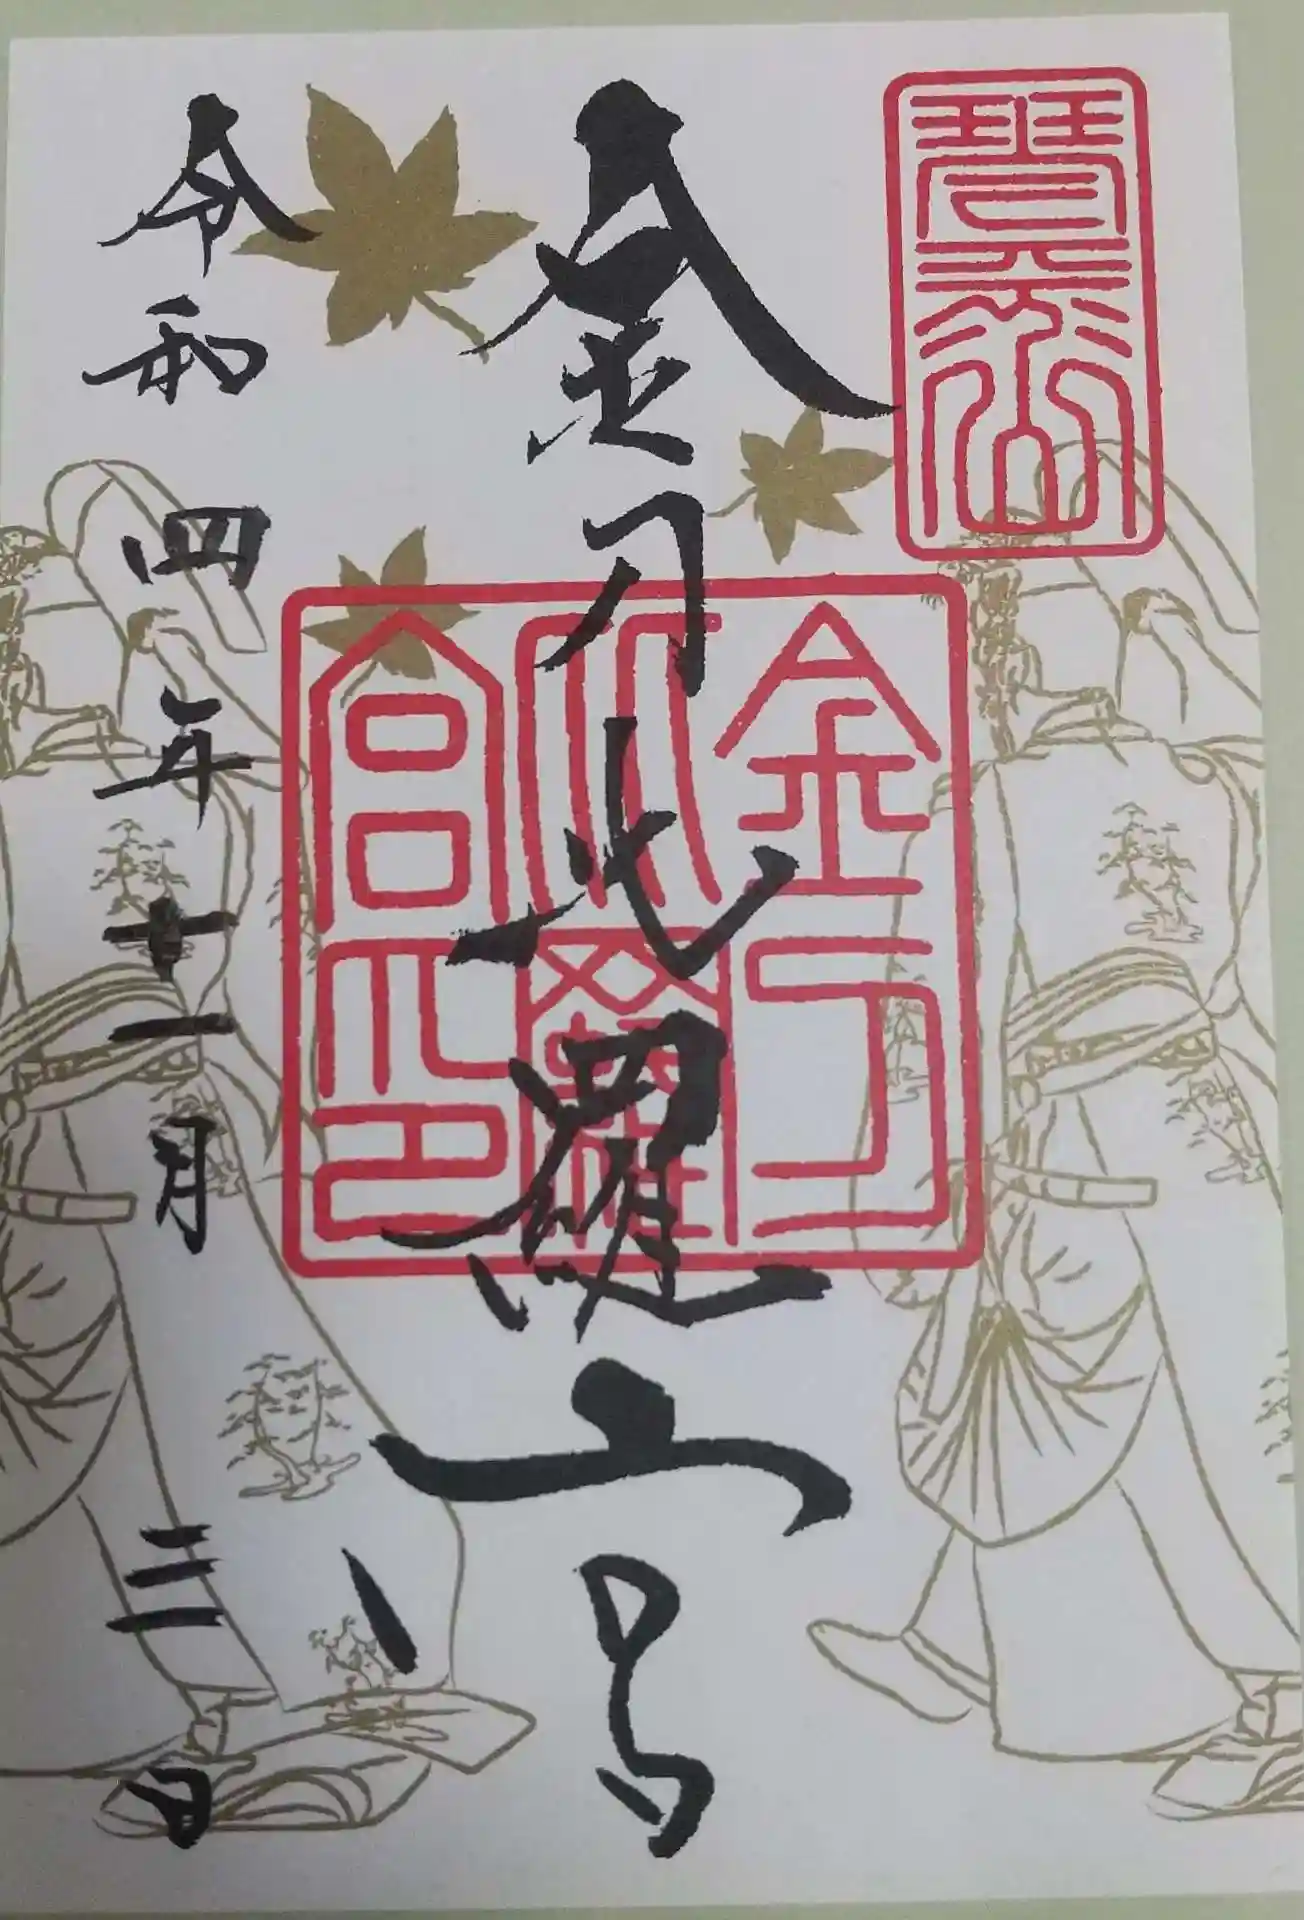 琴平山
金刀比羅宮
金刀比羅宮印
令和四年十一月三日